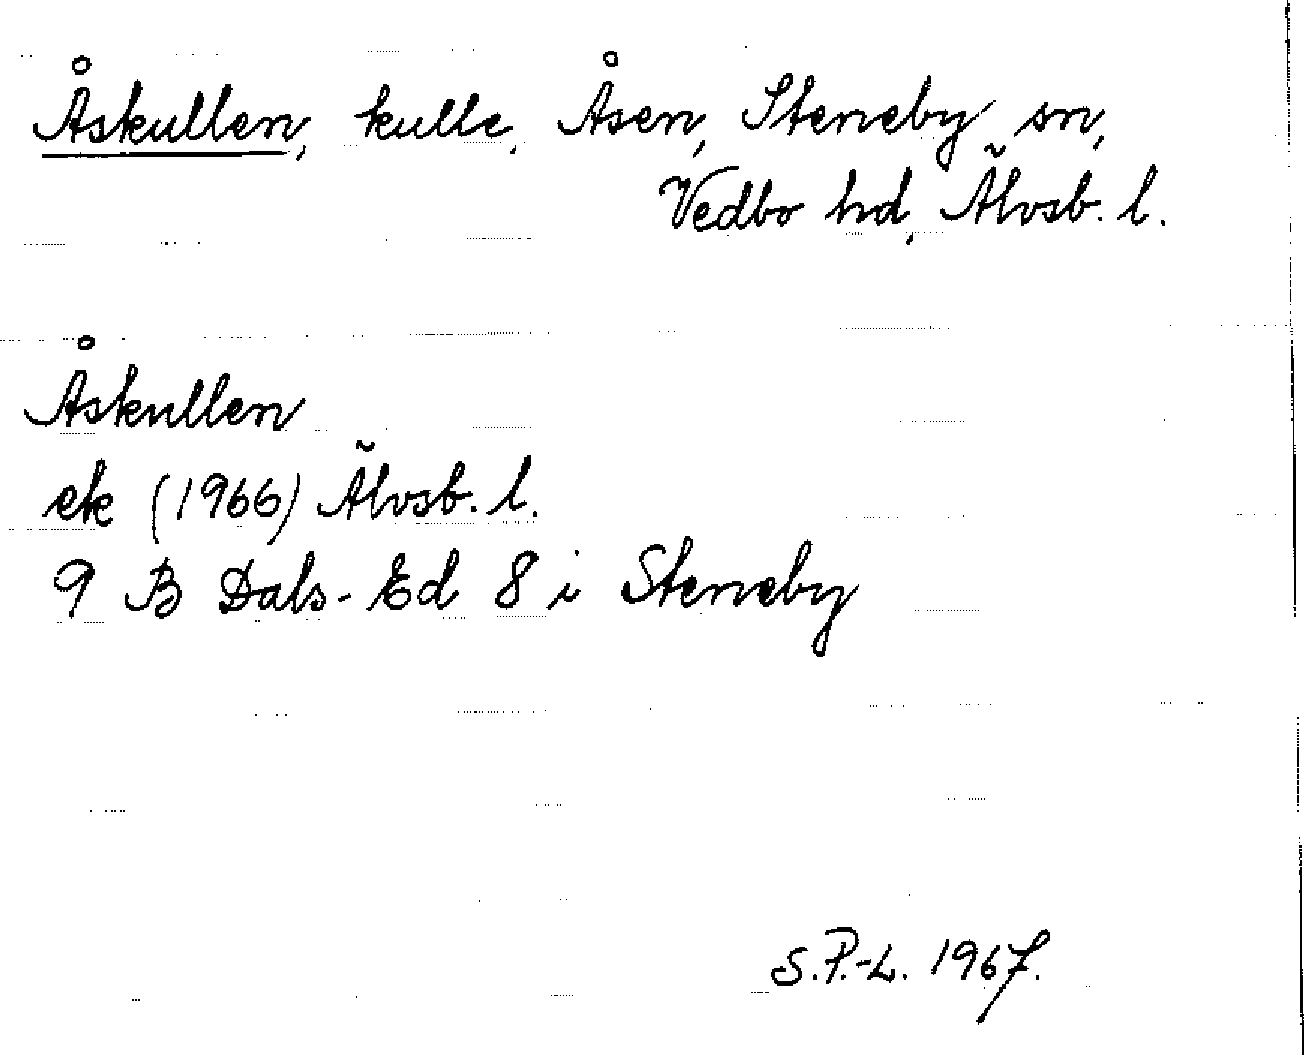 Åskullen, kulle, Åsen, Steneby sn,
Vedbo hd, Älvsb. l.
Åskullen
ek (1966) Älvsb. l.
9 B Dals-Ed 8 i Steneby
S.P.-L. 1967.